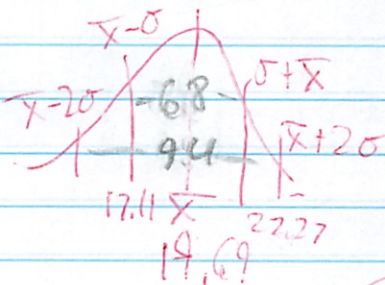 x̄-σ
x̄-2σ -68- σ+x̄
94 x̄+2σ
17.11 x̄ 22.27
19.69